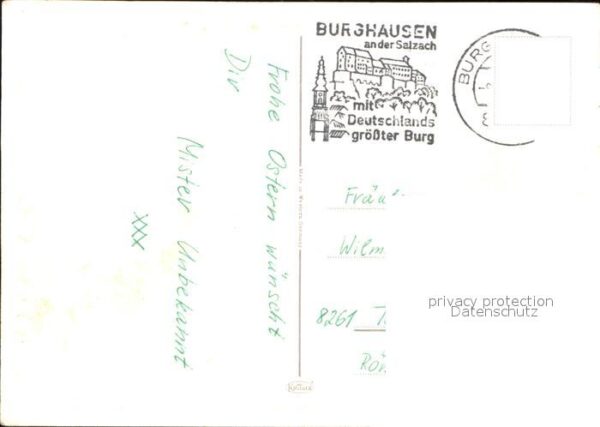 BURGHAUSEN
an der Salzach
mit
Deutschlands
größter Burg
BURG
Frohe Ostern wünscht
Dir
Mister Unbekannt
xxx
Made in Western Germany
8261
privacy protection
Datenschutz